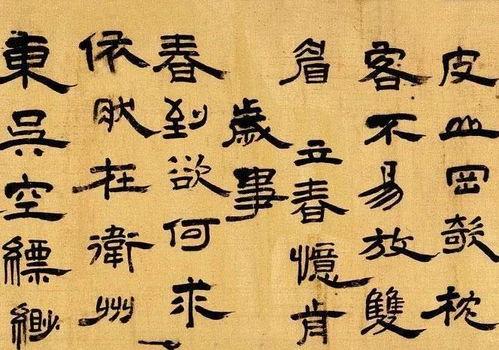 皮山岡欹枕
客不易放雙
眉 立春憶肯
歲事
春到欲何求
依然在衛州
東吳空縹緲